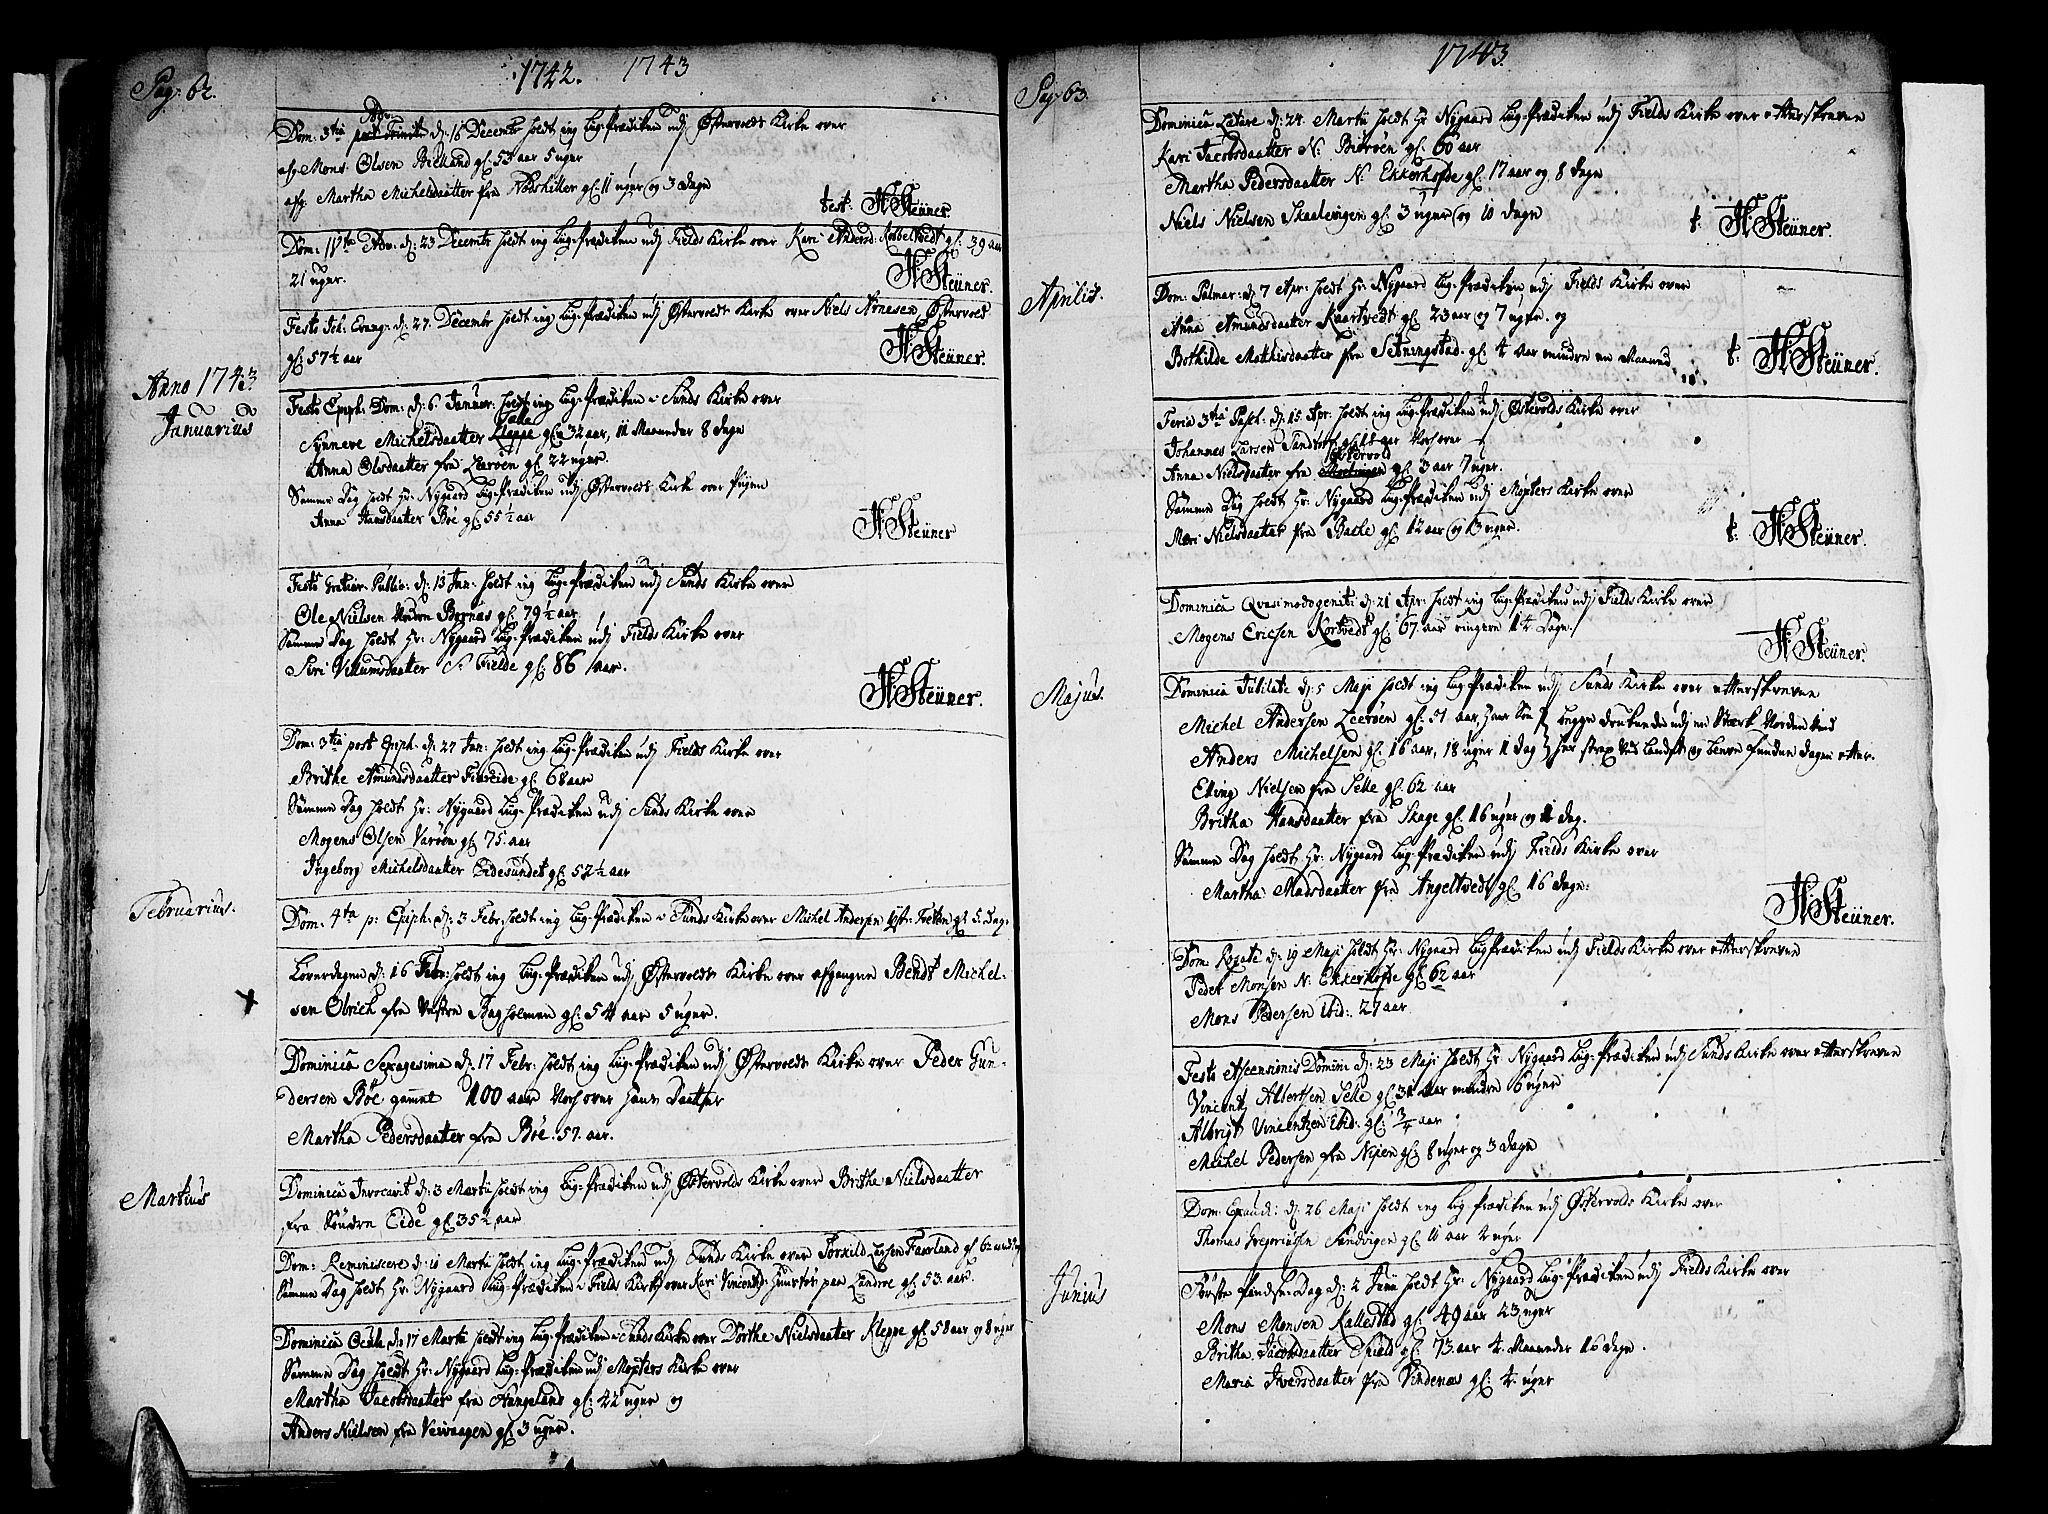 Pag: 62.
1742. 1743
Adv:
Dom: 3tia post Trinit: d: 16 Decembr holdt ieg Liig-Prædiken udj Østervolds Kirke over
afg: Mons Olsen Bielland gl: 53 aar 5 uger
afg. Martha Michelsdaatter fra gl: 11 uger og 3 dage
test: HSteüner.
Dom: IVta Adv: d: 23 Decembr holdt ieg Liig-Prædiken udj Fields Kirke over Kari Andersd: gl: 39 aar
21 uger.
HSteüner.
Festo Joh: Evang: d: 27. Decembr holdt ieg Liig-Prædiken udj Østervolds Kirke over Niels Arnesen Østervold
gl: 57½ aar
HSteüner.
Anno 1743
Januarius
Festo Epiph: Dom: d: 6 Januar: holdt ieg Liig-Prædiken i Sunds Kirke over
Synneve Michelsdaatter Kleppe gl: 32 aar, 11 Maaneder 8 dage
Anna Olsdaatter fra Leerøen gl: 22 uger.
Samme Dag holdt Hr: Nygaard Liig-Prædiken udj Østervolds Kirke over Pigen
Anna Hansdaatter Bøe gl: 55½ aar
HSteüner
Festo Gratiar: Public: d: 13 Jan: holdt ieg Liig-Prædiken udj Sunds Kirke over
Ole Nielsen Nedre Børnæs gl: 79½ aar
Samme Dag holdt Hr: Nygaard Liig-Prædiken udj Fields Kirke over
Siri Villumsdaatter S: Fielde gl: 86 aar.
HSteüner.
Dom: 3tia post Epiph: d: 27 Jan: holdt ieg Liig-Prædiken udj Fields Kirke over
Brithe Amundsdaatter gl: 68 aar
Samme Dag holdt Hr: Nygaard Liig-Prædiken udj Sunds Kirke over
Mogens Olsen Varøen gl: 75. aar
Ingeborg Michelsdaatter Eidesundet gl: 52½ aar
Februarius.
Dom: 4ta p: Epiph: d: 3 Febr: holdt ieg Liig-Prædiken i Sunds Kirke over Michel Andersen gl: 5. dage
Løverdagen d: 16 Febr: holdt ieg Liig-Prædiken udj Østervolds Kirke over afgangne Bendt Michel-
sen Olrich fra Vestre Bagholmen gl: 54 aar 5 uger.
Dominica Sexagesima d: 17 Febr: holdt ieg Liig-Prædiken udj Østervolds Kirke over Peder Gun-
dersen Bøe gamel 100 aar Nock over hans Daatter
Martha Pedersdaatter fra Bøe. 57. aar.
Martius
Dominica Invocavit d: 3 Martii holdt ieg Liig-Prædiken udj Østervolds Kirke over Brithe Nielsdaatter
fra Søndre Eide gl: 35½ aar
Dom: Reminiscere d: 10 Martii holdt ieg Liig-Prædiken udj Sunds Kirke over Torkild Larsen Farsland gl: 62
Samme Dag holdt Hr: Nygaard Liig-Prædiken i Fields Kirke over Kari Vincentsd: paa gl: 53. aar.
Dominica Oculi d: 17 Martii holdt ieg Liig-Prædiken i Sunds Kirke over Dorthe Nielsdaatter Kleppe gl: 58 aar og 8 uger
Samme Dag holdt Hr: Nygaard Liig-Prædiken udj Mosters Kirke over
Martha Jacobsdaatter fra Haugeland gl: 22 uger og
Anders Nielsen fra Veivaagen gl: 3 uger.
Pag: 63.
1743.
Dominica Lætare d: 24. Martii holdt Hr Nygaard Liig-Prædiken udj Fields Kirke over efterskrevne
Kari Jacobsdaatter N: Biørøen gl: 60 aar
Martha Pedersdaatter N: Ekkerhofde gl: 17 aar og 8 dage
Niels Nielsen Skaalevigen gl: 3 uger og 10 dage
t: HSteüner.
Aprilis.
Dom: Palmar: d: 7 Apr: holdt Hr: Nygaard Liig-Prædiken udj Fields Kirke over
Anna Amundsdaatter Kaartvedt gl: 23 aar og 7 uger. og
Bothilde Mathisdaatter fra Setningstad. gl: 4 aar mindre en Maaned
t: HSteüner.
Feria 3tia Pasch: d: 15 Apr: holdt ieg Liig-Prædiken udj Østervolds Kirke over
Johannes Larsen Sandtorf gl: 18 aar Nock over
Østervold
Anna Nielsdaatter fra gl: 3 aar 7 uger.
Samme Dag holdt Hr: Nygaard Liig-Prædiken udj Mosters Kirke over
Mari Nielsdaatter fra Backe gl: 12 aar og 13 uger.
t: HSteüner.
Dominica Qvasimodogeniti d: 21 Apr: holdt ieg Liig-Prædiken udj Fields Kirke over
Mogens Ericsen Kortvedt gl: 67. aar ringere 14 Dage.
HSteüner.
Majus.
Dominica Jubilate d: 5 Maji holdt ieg Liig-Prædiken udj Sunds Kirke over efterskrevne
Michel Andersen Leerøen gl: 51 aar, hans Søn begge druknede udj en Stærk Norden Vind
Anders Michelsen gl: 16 aar, 18 uger 11 dag her strax ved Landet og bleve fundne dagen efter.
Elling Nielsen fra Selle gl: 62 aar
Britha Hansdaatter fra Skage gl: 16 uger og 11 dag.
Samme Dag holdt Hr: Nygaard Liig-Prædiken udj Fields Kirke over
Martha Madsdaatter fra Angeltvedt gl: 16 dage:
HSteüner.
Dom: Rogate d: 19 Maji holdt Hr: Nygaard Liigprædiken udj Fields Kirke over efterskrevne
Peder Monsen N: Ekkerhofde gl: 62 aar
Mons Pedersen ibid: 27 aar
Festo Ascensionis Domini d: 23 Maji holdt Hr: Nygaard Liig-Prædiken udj Sunds Kirke over efterskrevne
Vincentz Albertsen Selle gl: 34 aar mindre 6 uger
Albrigt Vincentzen ibid: gl: ¾ aar
Michel Pedersen fra Nipen gl: 8 uger og 3 dage
Dom: Exaudi: d: 26 Maji holdt ieg Liig-Prædiken udj Østervolds Kirke over
Thomas Gregoriusen Sandvigen gl: 10 aar 2 uger
Junius
Første Pindse-Dag d: 2 Junii holdt Hr: Nygaard Liig-Prædiken udj Fields Kirke over
Mons Monsen Kallestad gl: 49 aar 23 uger
Britha Jacobsdaatter Spield gl: 73. aar 4. Maaneder 16 dage.
Maria Ivarsdaatter fra Vindenes gl: 4. uger